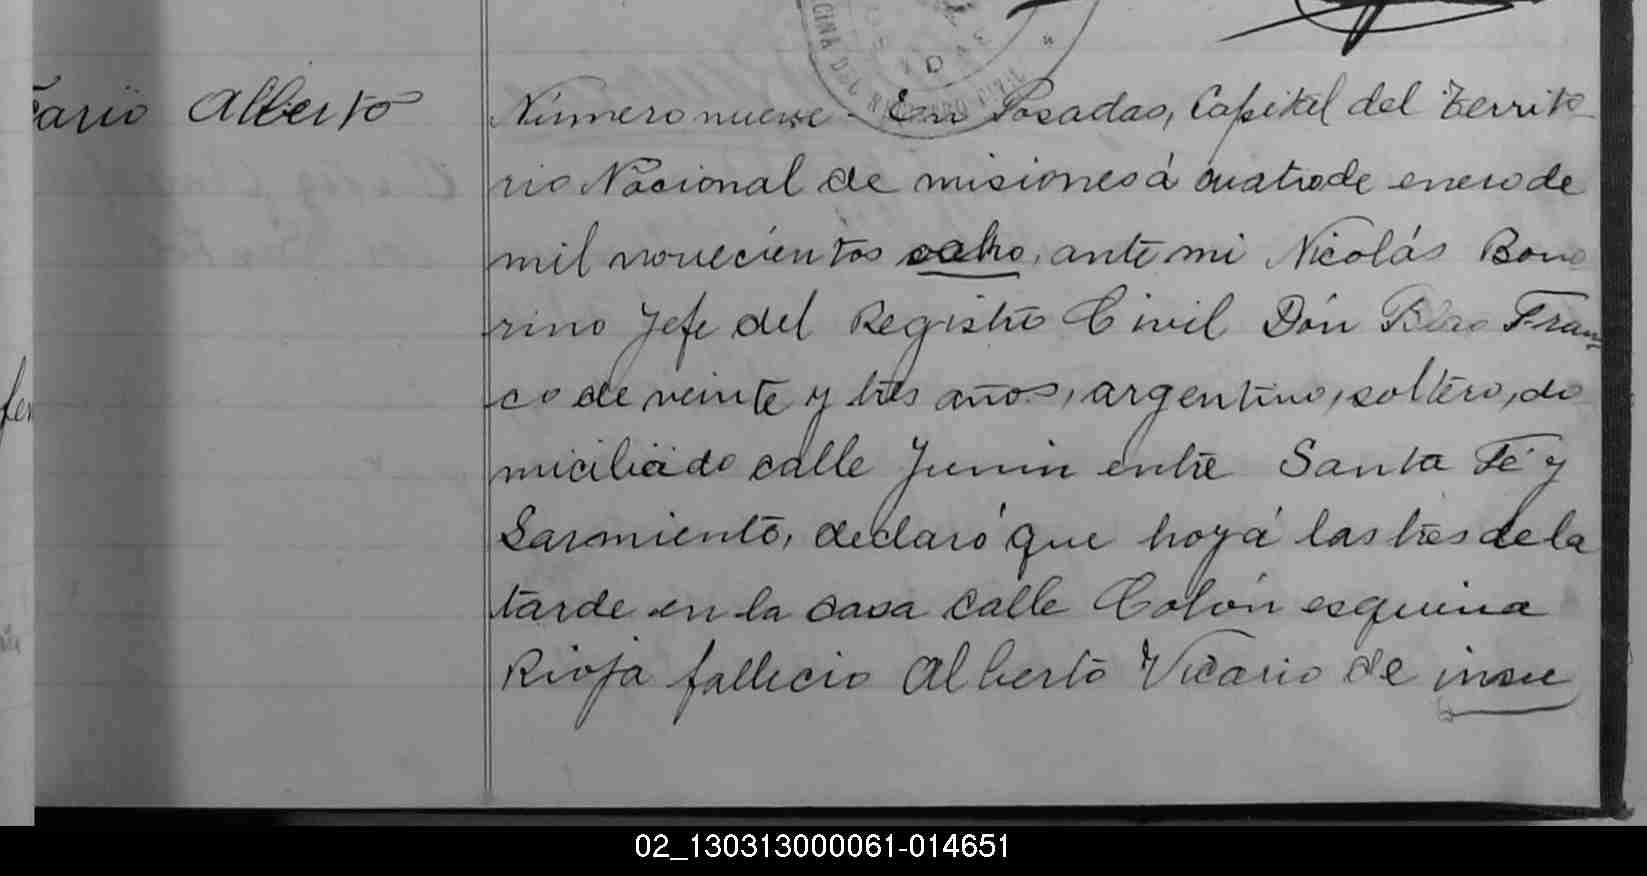 cario Alberto
Número nueve. En Posadas, Capital del Territo
rio Nacional de misiones á cuatro de enero de
mil novecientos ocho, ante mi Nicolás Bono
rino Jefe del Registro Civil Dón Blas Fran
co de veinte y tres años, argentino, soltero, do
miciliado calle Junin entre Santa Fé y
Sarmiento, declaró que hoy á las tres de la
tarde en la casa calle Colón esquina
Rioja fallecio Alberto Vicario de insu
02_130313000061-014651